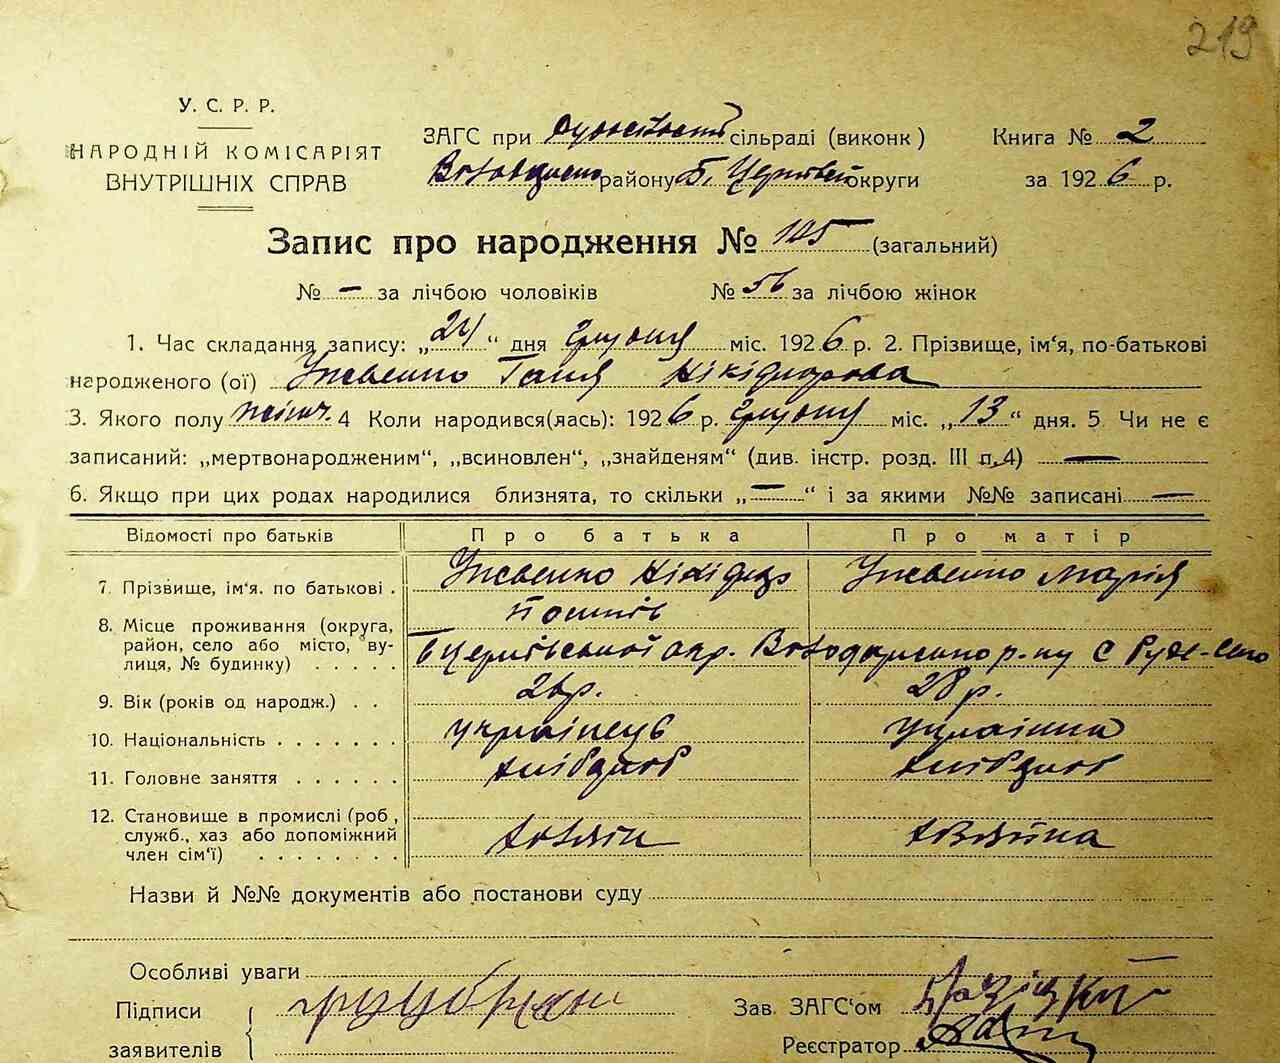 219
У. С. Р. Р.
НАРОДНІЙ КОМІСАРІЯТ
ВНУТРІШНІХ СПРАВ
ЗАГС при сільраді (виконк)
району Б. Церквсй округи
Книга № 2
за 1926 р.
Запис про народження № 105 (загальний)
№ — за лічбою чоловіків № 56 за лічбою жінок
1. Час складання запису: „24“ дня грудня міс. 1926 р. 2. Прізвище, ім‘я, по-батькові
народженого (ої) Ганя Нікіфорова
3. Якого полу жіноч. 4 Коли народився(лась): 1926 р. грудня міс. „13“ дня. 5 Чи не є
записаний: „мертвонародженим“, „всиновлен“, „знайденям“ (див. інстр. розд. III п. 4) —
6. Якщо при цих родах народилися близнята, то скільки „—“ і за якими №№ записані —
Відомості про батьків Про батька Про матір
7. Прізвище, ім‘я. по батькові . Нікіфор Марія
8. Місце проживання (округа, район, село або місто, вулиця, № будинку) . . . . . Бцерківської окр. Володарського р-ну С Руде-Село
9. Вік (років од народж.) . . 26р. 28 р.
10. Національність . . . . . . . українець українка
11. Головне заняття . . . . . . хлібороб хлібороб
12. Становище в промислі (роб, служб., хаз або допоміжний член сім‘ї) . . . . . . . . хозяїн хозяйка
Назви й №№ документів або постанови суду
Особливі уваги
Підписи
заявителів
Зав. ЗАГС‘ом
Реєстратор